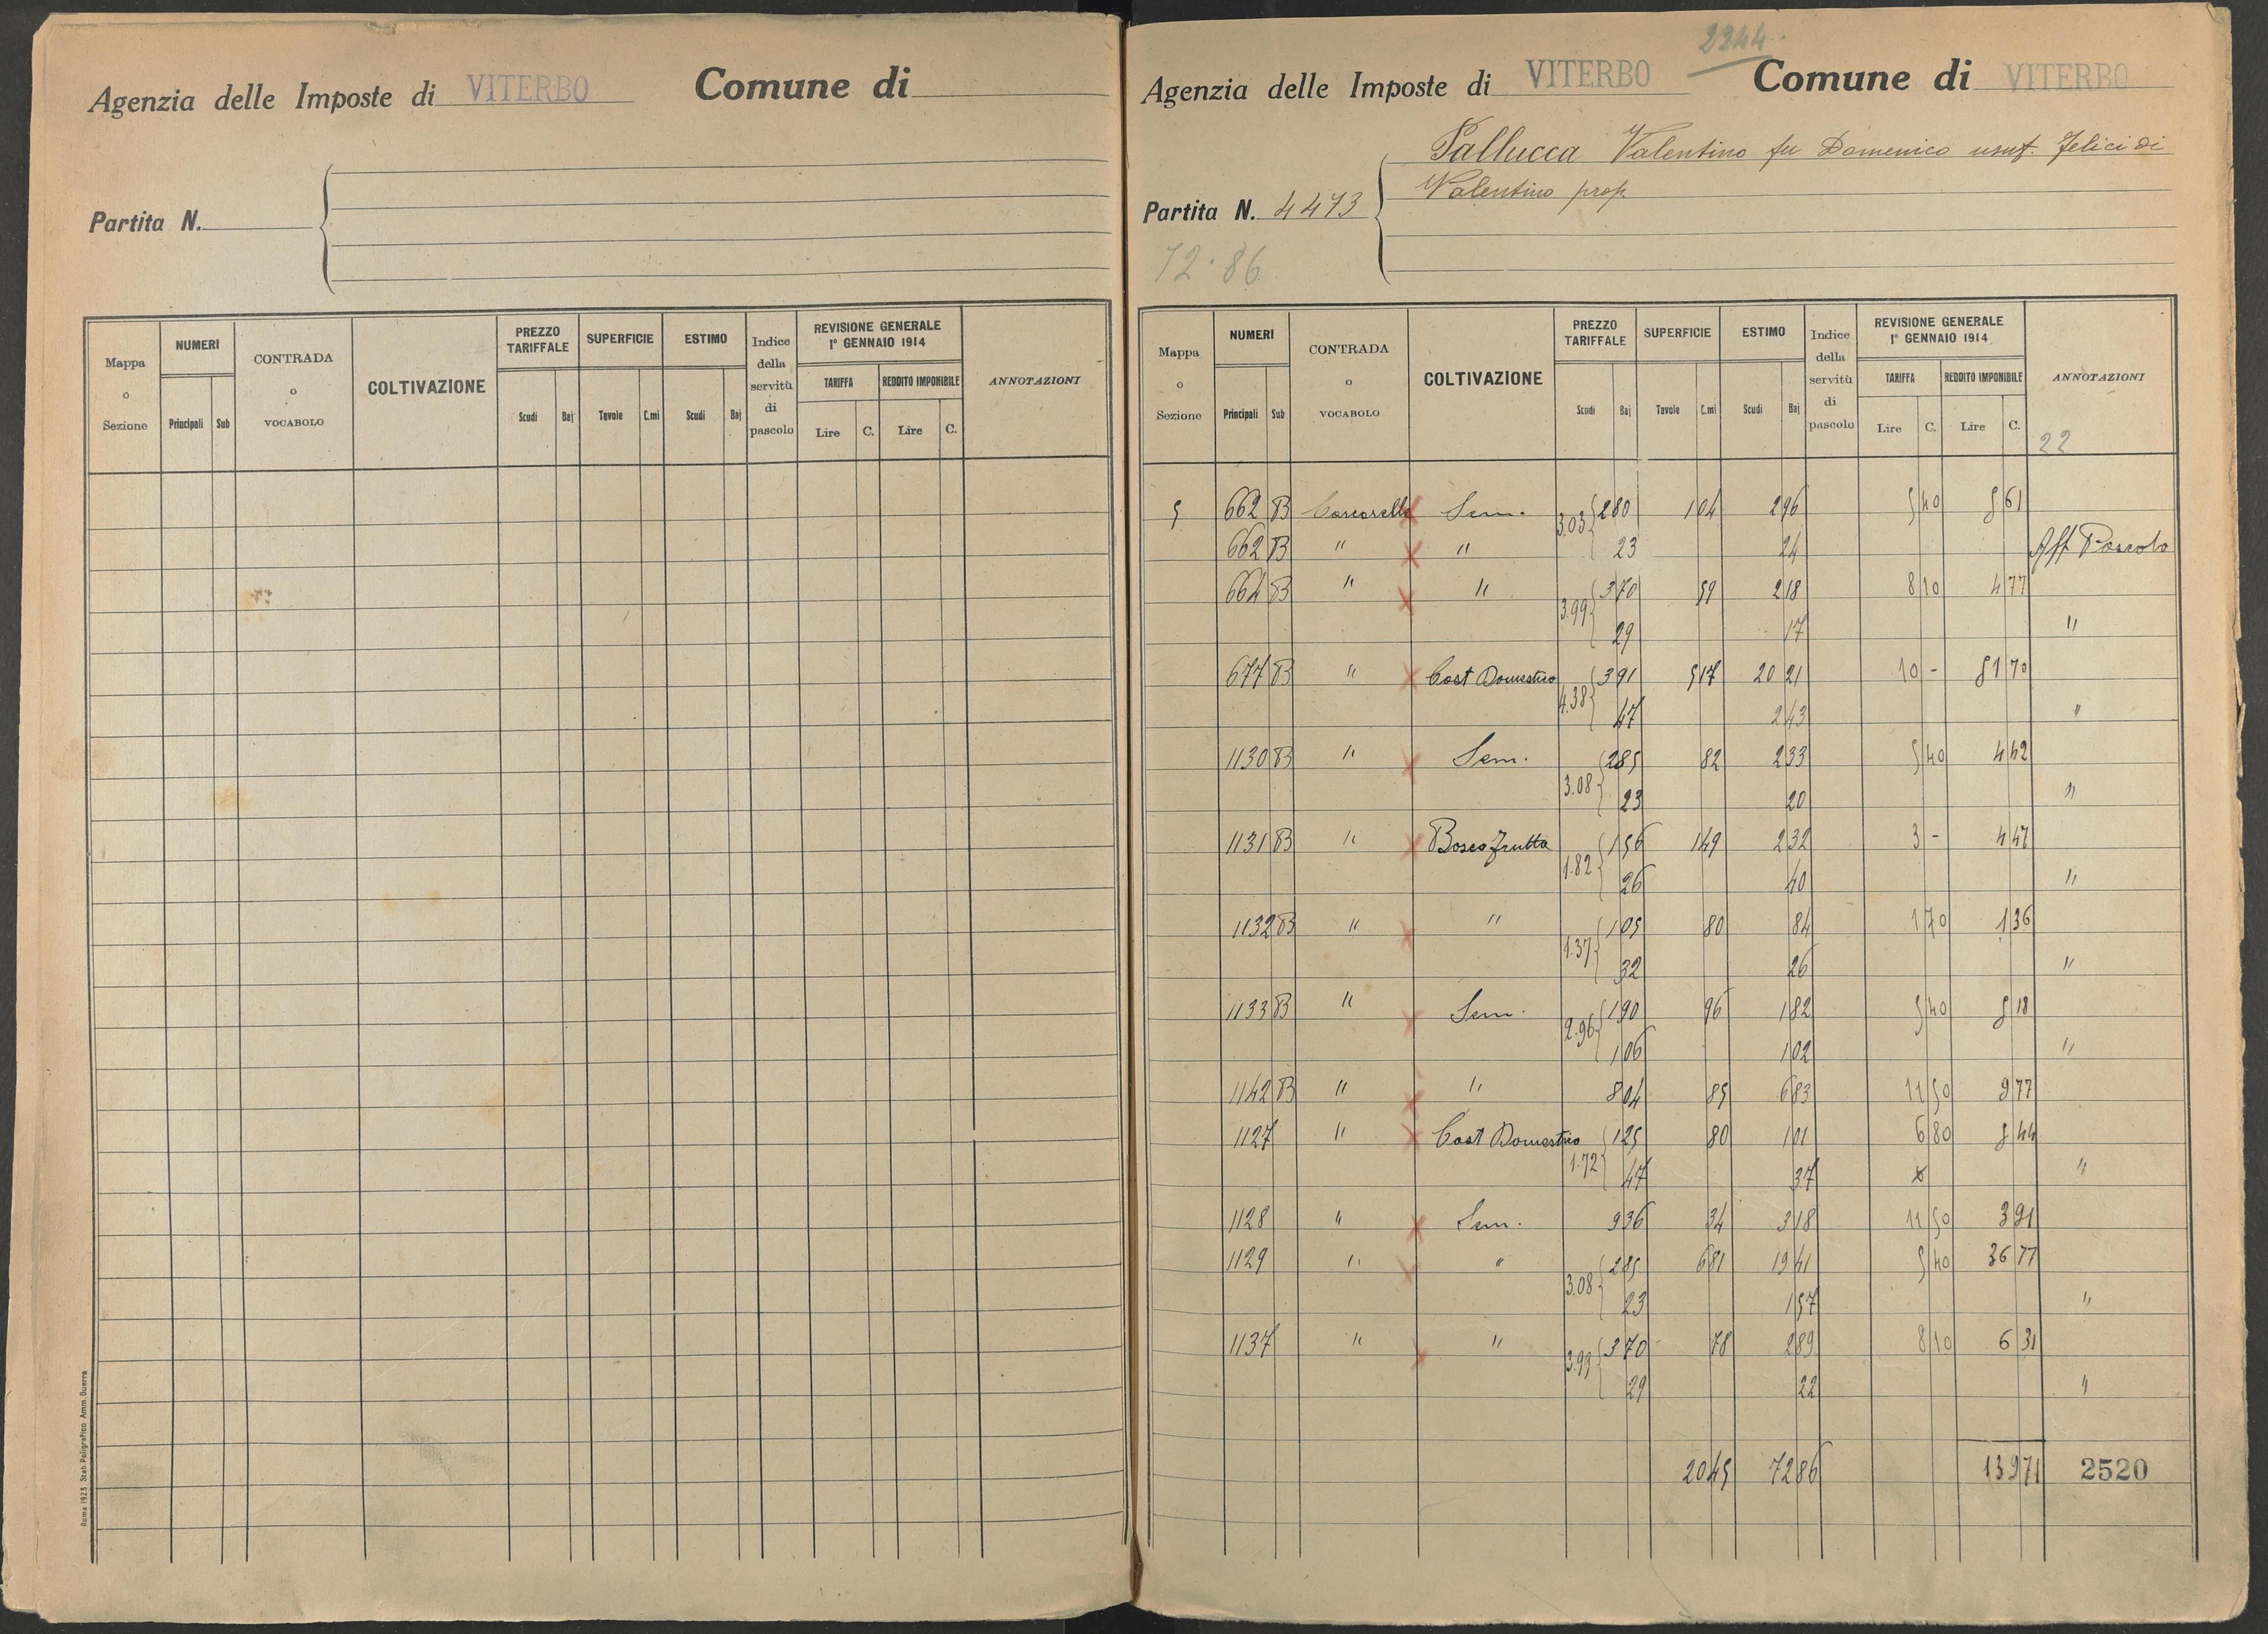 Agenzia delle Imposte di VITERBO Comune di
Partita N.
Mappa o Sezione | NUMERI | CONTRADA o VOCABOLO | COLTIVAZIONE | PREZZO TARIFFALE | SUPERFICIE | ESTIMO | Indice della servitù di pascolo | REVISIONE GENERALE 1° GENNAIO 1914 | ANNOTAZIONI
TARIFFA | REDDITO IMPONIBILE
Principali | Sub | Scudi | Baj | Tavole | C.mi | Scudi | Baj | Lire | C. | Lire | C.
Roma 1925 Stab. Poligrafico Amm. Guerra
2244
Agenzia delle Imposte di VITERBO Comune di VITERBO
Pallucca Valentino fu Domenico usuf. Felici di
Valentino prop.
Partita N. 4473
72.86
Mappa o Sezione | NUMERI | CONTRADA o VOCABOLO | COLTIVAZIONE | PREZZO TARIFFALE | SUPERFICIE | ESTIMO | Indice della servitù di pascolo | REVISIONE GENERALE 1° GENNAIO 1914 | ANNOTAZIONI
TARIFFA | REDDITO IMPONIBILE
Principali | Sub | Scudi | Baj | Tavole | C.mi | Scudi | Baj | Lire | C. | Lire | C.
22
5 | 662 | B | Sem. | 3.03 { 2 80 | 1 04 | 2 96 | 5 40 | 5 61
662 | B | " | " | 23 | 24 | Aff Pascolo
664 | B | " | " | 3.99 { 3 70 | 59 | 2 18 | 8 10 | 4 77
29 | 17 | "
677 | B | " | Cast Domestico | 4.38 { 3 91 | 5 17 | 20 21 | 10 - | 51 70
47 | 2 43 | "
1130 | B | " | Sem. | 3.08 { 2 85 | 82 | 2 33 | 5 40 | 4 42
23 | 20 | "
1131 | B | " | Bosco frutto | 1.82 { 1 56 | 1 49 | 2 32 | 3 - | 4 47
26 | 40 | "
1132 | B | " | " | 1.37 { 1 05 | 80 | 84 | 1 70 | 1 36
32 | 26 | "
1133 | B | " | Sem. | 2.96 { 1 90 | 96 | 1 82 | 5 40 | 5 18
1 06 | 1 02 | "
1142 | B | " | " | 8 04 | 85 | 6 83 | 11 50 | 9 77
1127 | " | Cast Domestico | 1.72 { 1 25 | 80 | 1 01 | 6 80 | 5 44
47 | 37 | x | "
1128 | " | Sem. | 9 36 | 34 | 3 18 | 11 50 | 3 91
1129 | " | " | 3.08 { 2 85 | 6 81 | 19 41 | 5 40 | 36 77
23 | 1 57 | "
1137 | " | " | 3.99 { 3 70 | 78 | 2 89 | 8 10 | 6 31
29 | 22 | "
20 45 | 72 86 | 139 71 | 2520